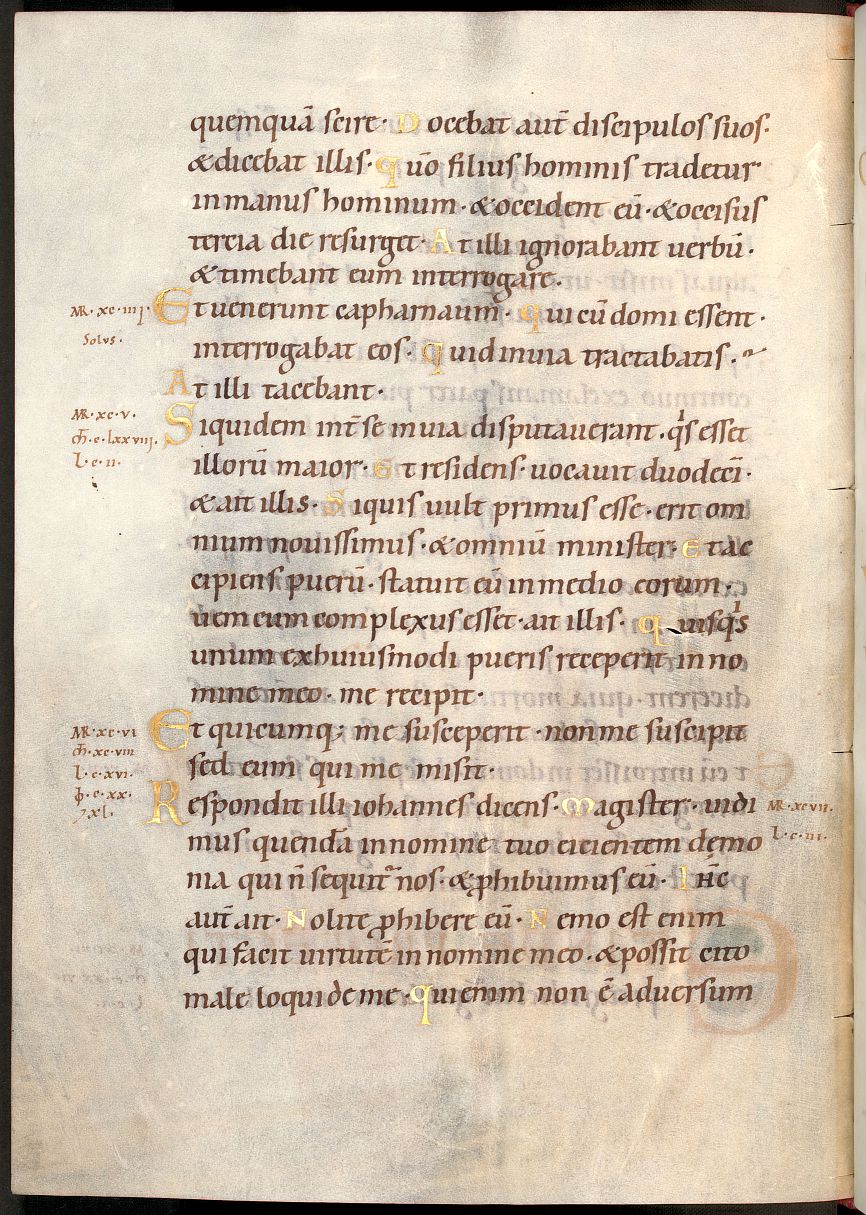 quemquā scire· Docebat aut̄ discipulos suos·
&dicebat illis· quō filius hominis tradetur
in manus hominum· &occident eū· &occisus
tercia die resurget· At illi ignorabant uerbū·
&timebant eum interrogare·
MR· xc· iiij· Et uenerunt capharnaum· qui cū domi essent·
Solus· interrogabat eos· quid in uia tractabatis·
At illi tacebant·
MR· xc· v· Siquidem int̄ se in uia disputauerant· qͥs esset
m̄· c· lxxviij· illorū maior· Et residens· uocauit duodecī·
l· c· ii· &ait illis· Siquis uult primus esse· erit om
nium nouissimus· &omniū minister· Et ac
cipiens puerū· statuit eū in medio eorum·
uem cum complexus esset· ait illis· quisqͥs
unum ex huiusmodi pueris receperit in no
mine meo· me recipit·
MR· xc· vi Et quicumq; me susceperit· non me suscipit
m̄· xc· viiii sed eum qui me misit·
l· c· xvi·
ꝑ· c· xx· Respondit illi iohannes dicens· Magister· uidi MR· xcvii·
xl· mus quendā in nomine tuo eicientem demo l· c· iii·
nia qui n̄ sequit᷑ nos· &ꝓhibuimus eū· Ih̄c
aut̄ ait· Nolite ꝓhibere eū· Nemo est enim
qui facit uirtutē in nomine meo· &possit cito
male loqui de me· qui enim non ē aduersum